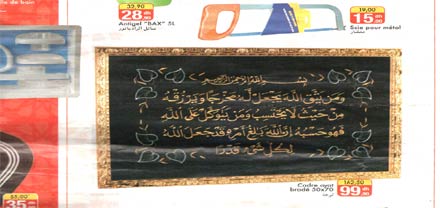 de bain
32,90
28 dh ,00
Antigel "BAX" 5L
سائل الرادياتور
19,00
15 dh ,00
Scie pour métal
منشار
بسم الله الرحمن الرحيم
ومن يتق الله يجعل له مخرجا ويرزقه
من حيث لا يحتسب ومن يتوكل على الله
فهو حسبه إن الله بلغ أمره قد جعل الله
لكل شيء قدرا
Cadre ayat
brodé 50x70
162,50
99 dh
55,00
35